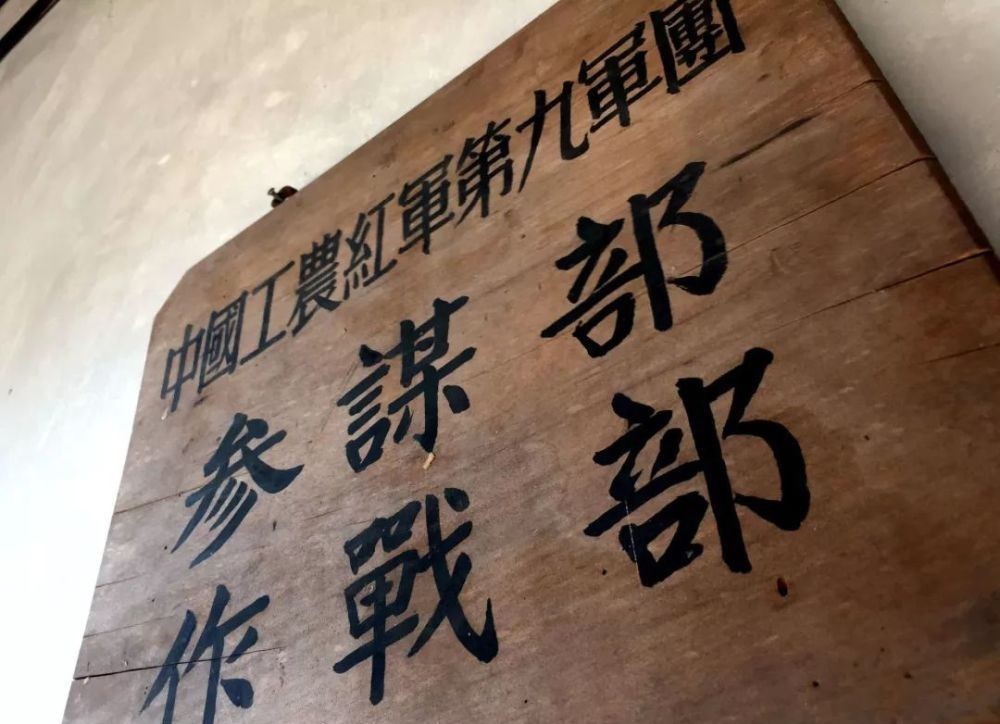 中國工農紅軍第九軍團
参謀部
作戰部